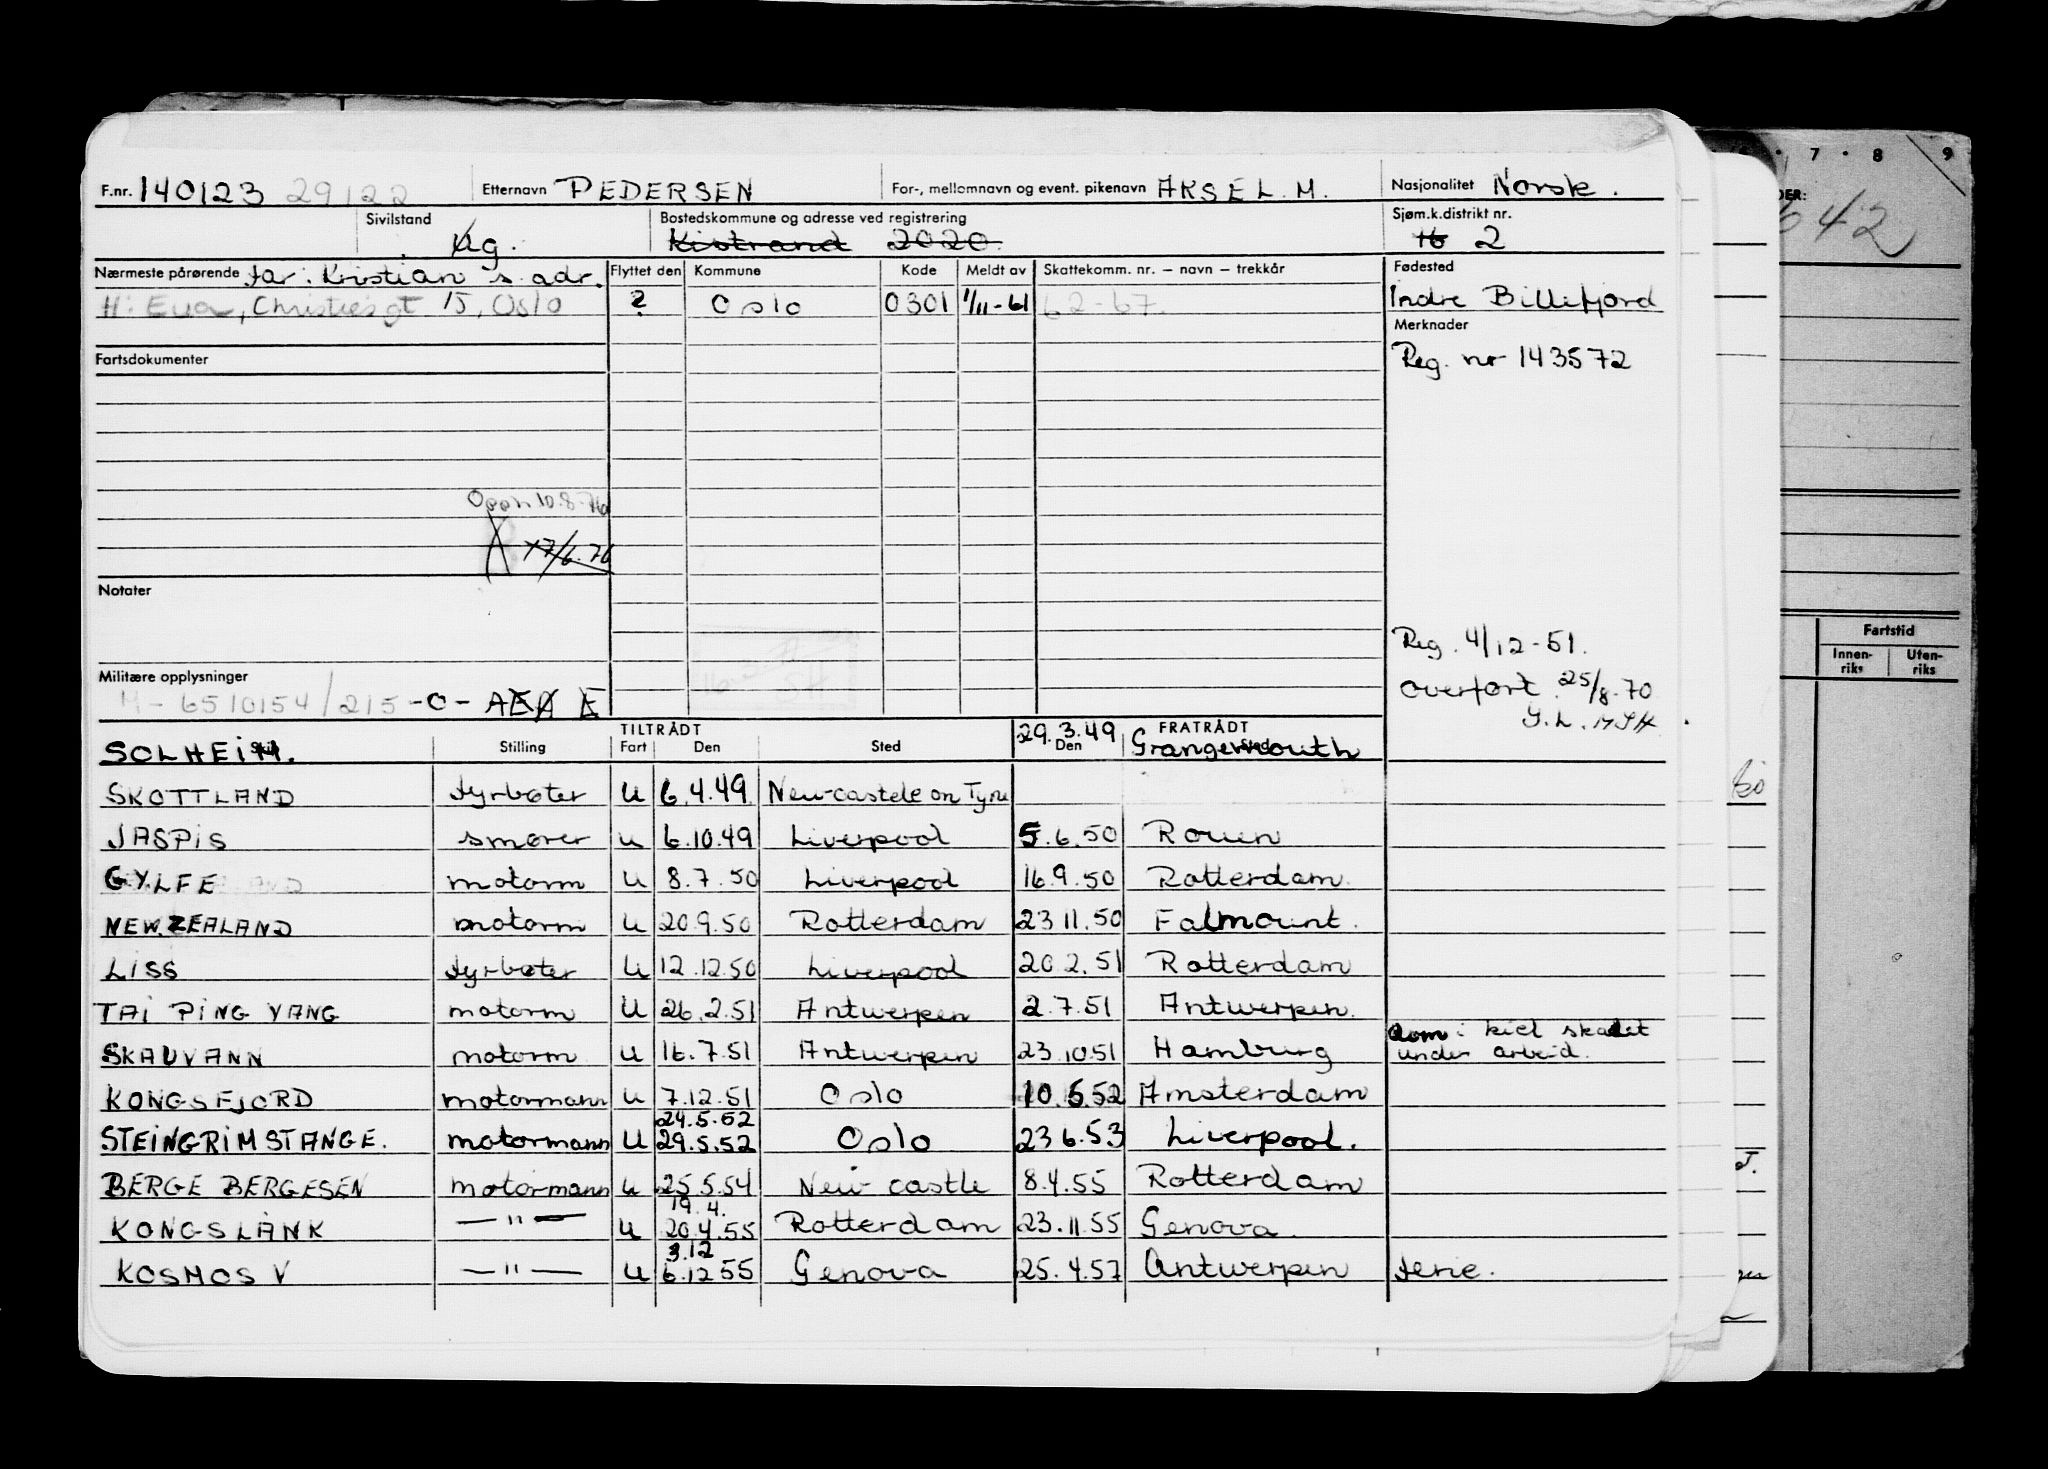 F.nr. 140123 29122 Etternavn PEDERSEN For-, mellomnavn og event. pikenavn AKSEL. M. Nasjonalitet Norsk.
Sivilstand Ug. Bostedskommune og adresse ved registrering Kistrand 2020. Sjøm.k.distrikt nr. 16 2
Nærmeste pårørende far: Kristian s. adr. Flyttet den Kommune Kode Meldt av Skattekomm. nr. – navn – trekkår Fødested
H: Eva, Christiesgt 15, Oslo ? Oslo 0301 1/11-61 62-67. Indre Billefjord
Merknader
Fartsdokumenter Reg. nr 143572
10.8.76
17/6.76
Notater
Reg. 4/12-51.
Militære opplysninger
M- 6510154/215-0- Overført 25/8-70
TILTRÅDT FRATRÅDT
Skip Stilling Fart Den Sted Den Sted
SOLHEIM. 29.3.49 Grangemouth
SKOTTLAND fyrbøter U 6.4.49. New-castele on Tyne
JASPIS smører u 6.10.49 Liverpool 5.6.50 Rouen
GYLFE motorm U 8.7.50 Liverpool 16.9.50 Rotterdam.
NEW.ZEALAND motorm U 20.9.50 Rotterdam 23 11.50 Falmount.
LISS fyrbøter U 12.12.50 Liverpool 20.2.51 Rotterdam
TAI PING YANG motorm U 26.2.51 Antwerpen 2.7.51 Antwerpen.
SKAUVANN motorm U 16.7.51 Antwerpen 23.10.51 Hamburg kiel skadet
under arbeid.
KONGSFJORD motormann U 7.12.51 Oslo 10.5.52 Amsterdam
24.5.52
STEINGRIMSTANGE. motormann U 29.5.52 Oslo 23 6.53 Liverpool.
BERGE BERGESEN motormann U 25.5.54 New castle 8.4.55 Rotterdam
19.4.
KONGSLANK —"— U 20.4.55 Rotterdam 23.11.55 Genova.
3.12
KOSMOS V —"— U 6.12 55 Genova 25.4.57 Antwerpen ferie.
7 8 9
DER:
642
Fartstid
Innen-
riks
Uten-
riks